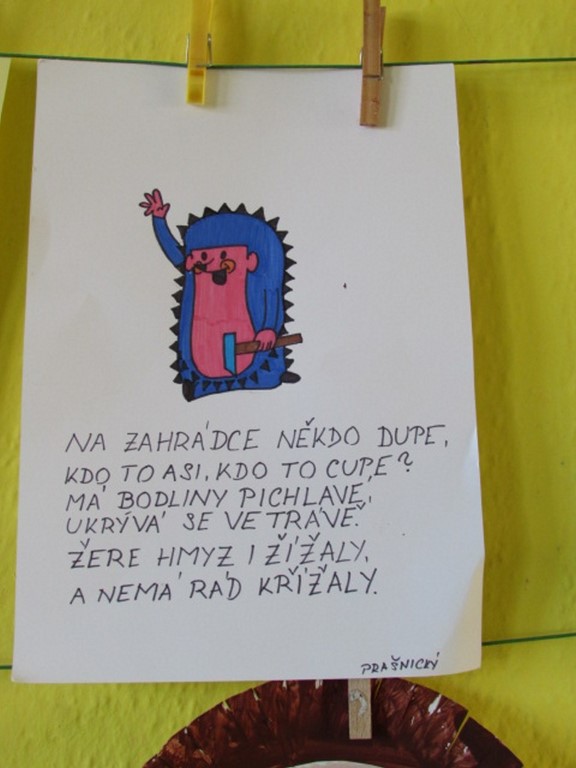 NA ZAHRÁDCE NĚKDO DUPE,
KDO TO ASI, KDO TO CUPE?
MÁ BODLINY PICHLAVÉ,
UKRÝVÁ SE VE TRÁVĚ.
ŽERE HMYZ I ŽÍŽALY,
A NEMÁ RÁD KŘÍŽALY.
PRAŠNICKÝ